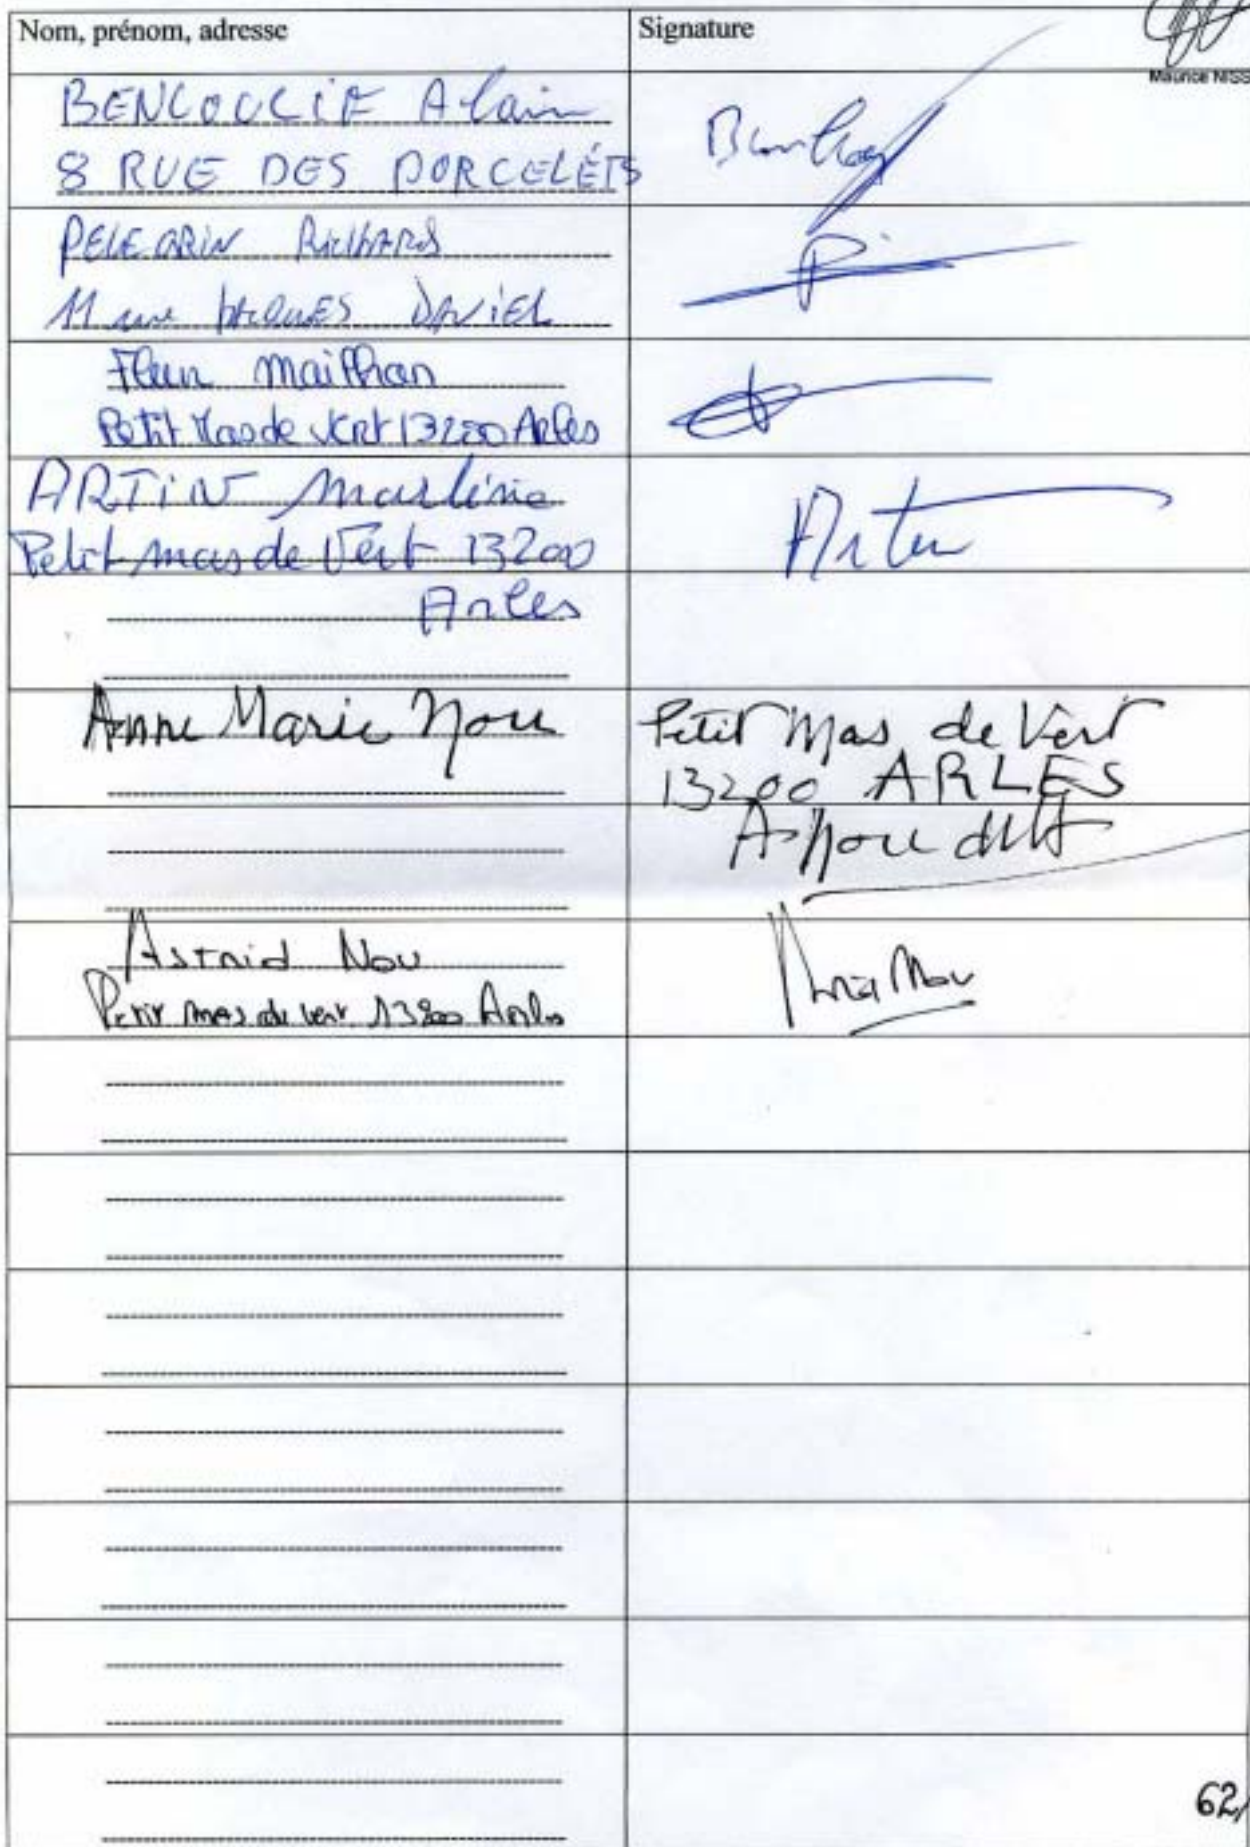 Nom, prénom, adresse
Signature
Maurice NISS
Alain
8 RUE DES PORCELÉTS
PELEGRIN Richard
11 rue JACQUES DAVIEL
Fleur
Petit Mas de Vert 13200 Arles
ARTIN Marlène
Petit mas de Vert 13200
Arles
Artin
Anne Marie Nou
Petit Mas de Vert
13200 ARLES
A Nou
Astrid Nou
Petit mas de vert 13200 Arles
62/